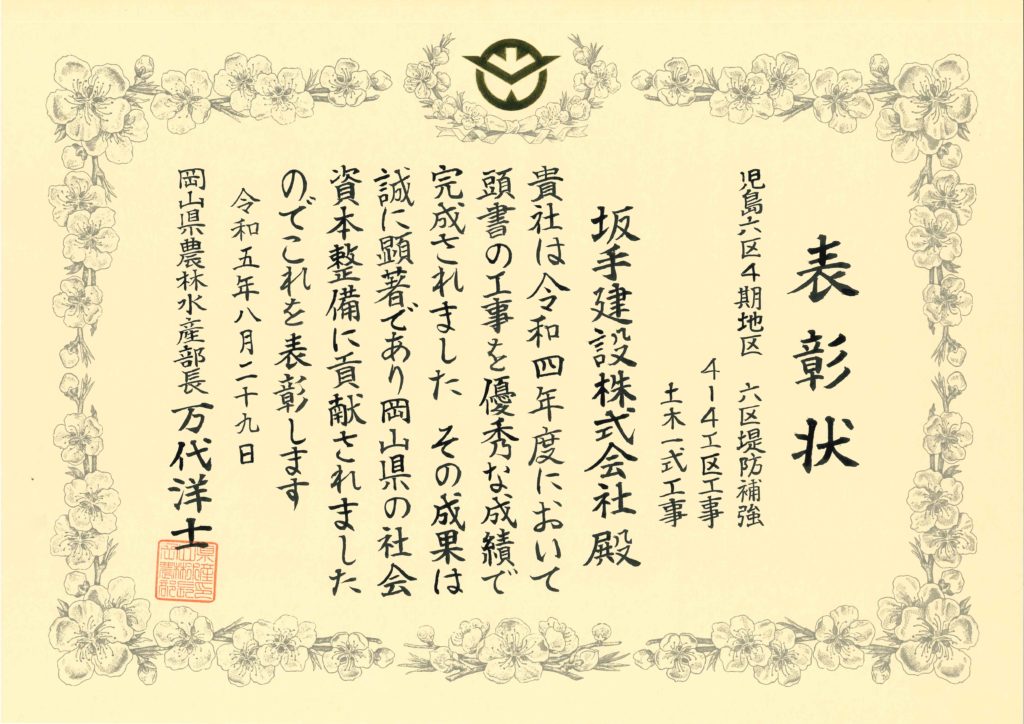 表彰状
児島六区4期地区 六区堤防補強
4ー4工区工事
土木一式工事
坂手建設株式会社殿
貴社は令和四年度において
頭書の工事を優秀な成績で
完成されました その成果は
誠に顕著であり岡山県の社会
資本整備に貢献されました
のでこれを表彰します
令和五年八月二十九日
岡山県農林水産部長 万代洋士